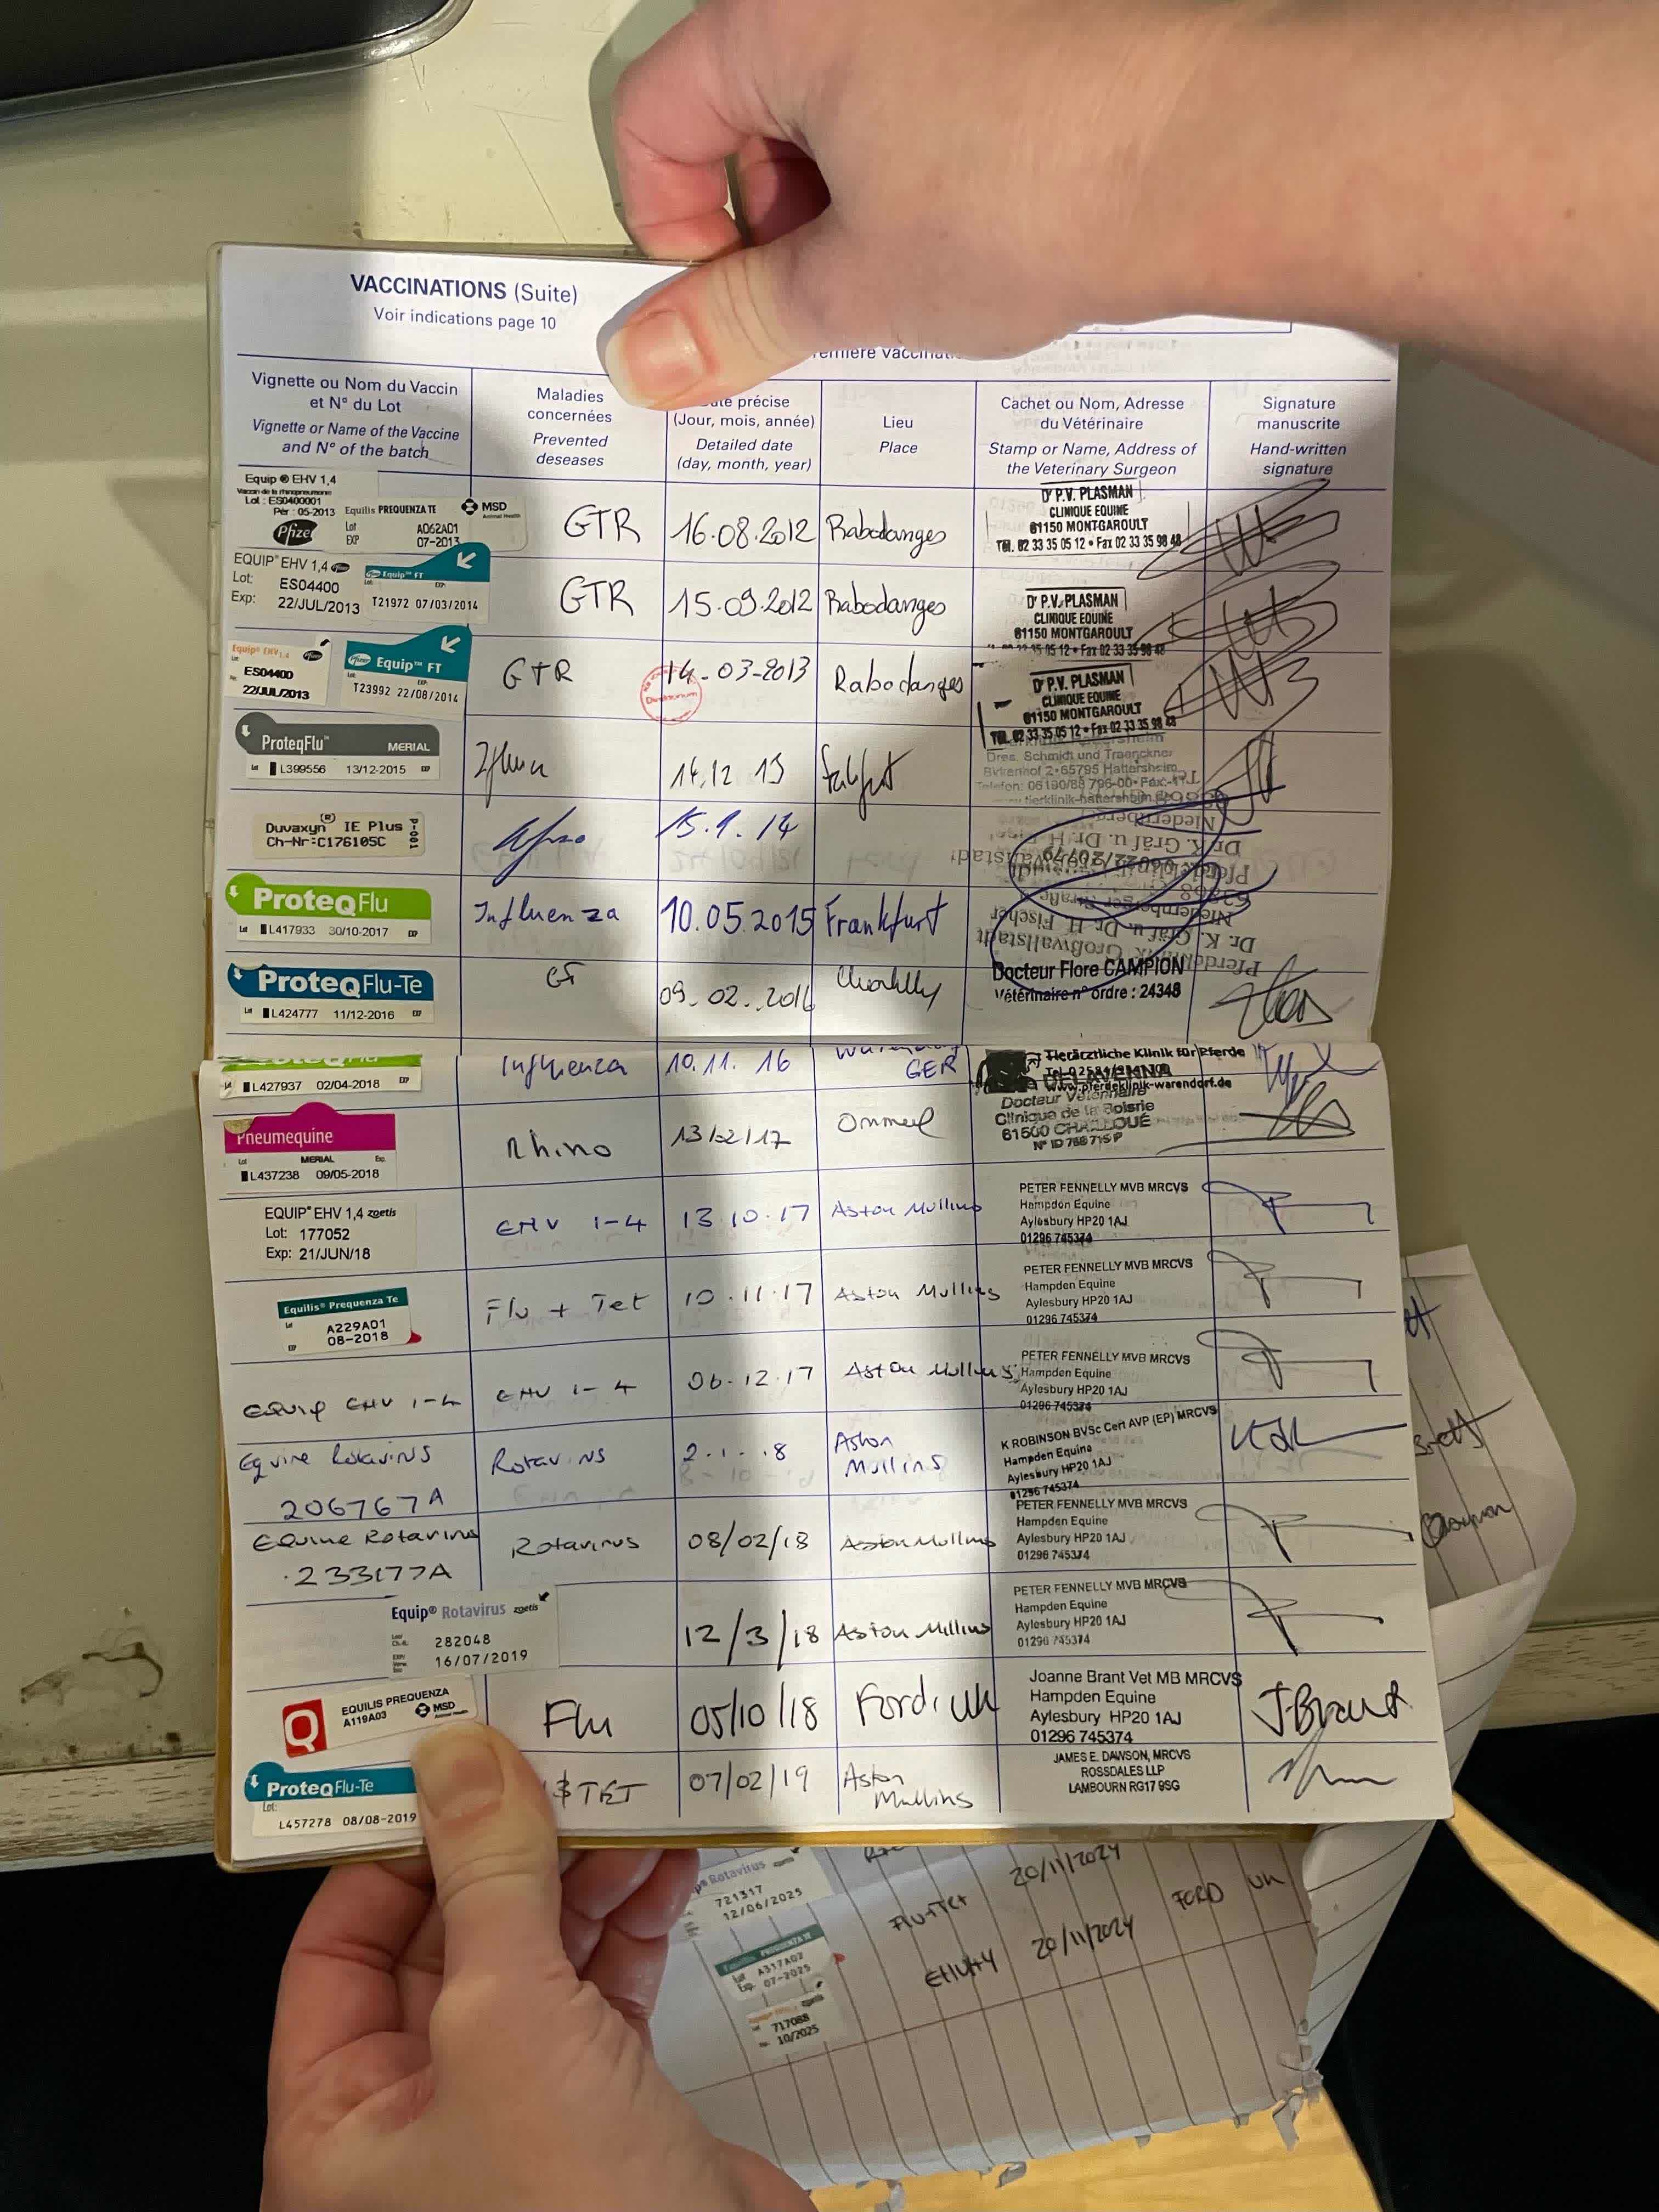 VACCINATIONS (Suite)
Voir indications page 10
Vignette ou Nom du Vaccin
et N° du Lot
Vignette or Name of the Vaccine
and N° of the batch
Maladies
concernées
Prevented
deseases
précise
(Jour, mois, année)
Detailed date
(day, month, year)
Lieu
Place
Cachet ou Nom, Adresse
du Vétérinaire
Stamp or Name, Address of
the Veterinary Surgeon
Signature
manuscrite
Hand-written
signature
Equip ® EHV 1,4
Lot : ES0400001
Pér : 05-2013
Pfizer
Equilis PREQUENZA TE
MSD
Animal Health
Lot A062A01
EXP 07-2013
GTR
16.08.2012
Rabodanges
Dr P.V. PLASMAN
CLINIQUE EQUINE
61150 MONTGAROULT
TEL. 02 33 35 05 12 • Fax 02 33 35 98 48
EQUIP® EHV 1,4
Lot: ES04400
Exp: 22/JUL/2013
Equip™ FT
T21972 07/03/2014
GTR
15.09.2012
Rabodanges
Dr P.V. PLASMAN
CLINIQUE EQUINE
61150 MONTGAROULT
35 05 12 • Fax 02 33 35 98 48
Equip® EHV 1,4
ES04400
22/JUL/2013
Equip™ FT
T23992 22/08/2014
GTR
14-03-2013
Rabodanges
Dr P.V. PLASMAN
CLINIQUE EQUINE
61150 MONTGAROULT
TEL. 02 33 35 05 12 • Fax 02 33 35 98 48
ProteqFlu™
MERIAL
Lot L399556 13/12/2015 EXP
14.12 13
Dres. Schmidt und Traenckner
Birkenhof 2 • 65795 Hattersheim
Telefon: 06190/88 796-00 • Fax:
tierklinik-hattersheim
Duvaxyn® IE Plus
Ch-Nr:C176105C
P-001
15.1.14
ProteqFlu
Lot L417933 30/10/2017 EXP
Influenza
10.05.2015
Frankfurt
Pferdeklinik Großwallstadt
Dr. K. Gräf u. Dr. H. Fischer
ProteqFlu-Te
Lot L424777 11/12/2016 EXP
GT
09.02.2016
Docteur Flore CAMPION
Vétérinaire n° ordre : 24348
L427937 02/04/2018 EXP
Influenza
10.11. 16
GER
Tierärztliche Klinik für Pferde
www.pferdeklinik-warendorf.de
Pneumequine
Lot MERIAL Exp.
L437238 09/05/2018
Rhino
13/02/17
Ommeel
Docteur Vétérinaire
Clinique de la Boisrie
61500 CHAILLOUÉ
N° ID 768 715 P
EQUIP® EHV 1,4 zoetis
Lot: 177052
Exp: 21/JUN/18
EHV 1-4
13.10.17
Aston Mullins
PETER FENNELLY MVB MRCVS
Hampden Equine
Aylesbury HP20 1AJ
01296 745374
Equilis® Prequenza Te
Lot A229A01
EXP 08-2018
Flu + Tet
10.11.17
Aston Mullins
PETER FENNELLY MVB MRCVS
Hampden Equine
Aylesbury HP20 1AJ
01296 745374
Equip EHV 1-4
EHV 1-4
06.12.17
Aston Mullins
PETER FENNELLY MVB MRCVS
Hampden Equine
Aylesbury HP20 1AJ
01296 745374
Equine Rotavirus
206767A
Rotavirus
2.1.18
Aston
Mullins
K ROBINSON BVSc Cert AVP (EP) MRCVS
Hampden Equine
Aylesbury HP20 1AJ
01296 745374
Equine Rotavirus
233177A
Rotavirus
08/02/18
Aston Mullins
PETER FENNELLY MVB MRCVS
Hampden Equine
Aylesbury HP20 1AJ
01296 745374
Equip® Rotavirus zoetis
282048
16/07/2019
12/3/18
Aston Mullins
PETER FENNELLY MVB MRCVS
Hampden Equine
Aylesbury HP20 1AJ
01296 745374
Q
EQUILIS PREQUENZA
A119A03
MSD
Animal Health
Flu
05/10/18
Ford, UK
Joanne Brant Vet MB MRCVS
Hampden Equine
Aylesbury HP20 1AJ
01296 745374
J.Brant
ProteqFlu-Te
Lot:
L457278 08/08-2019
TET
07/02/19
Aston
Mullins
JAMES E. DAWSON, MRCVS
ROSSDALES LLP
LAMBOURN RG17 9SG
Rotavirus
721317
12/06/2025
PREQUENZA TE
A317A02
07-2025
Flu+Tet
20/11/2024
FORD UK
717088
10/2025
20/11/2024